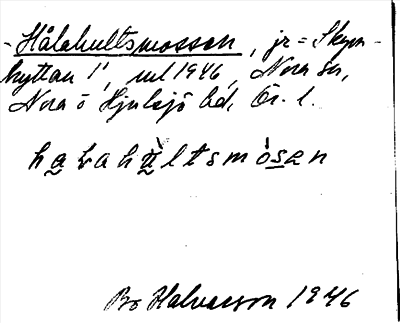 - Hålahultsmossen, jr = Skym-
hyttan 1', uul 1946, Nora sn,
Nora o Hjulsjö bd, Ör. l.
havahultsmosen
Bo Halvarson 1946